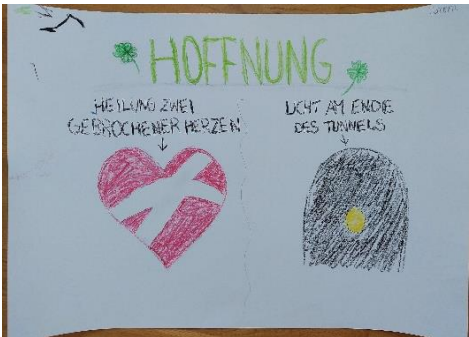 HOFFNUNG
HEILUNG ZWEI
GEBROCHENER HERZEN
LICHT AM ENDE
DES TUNNELS